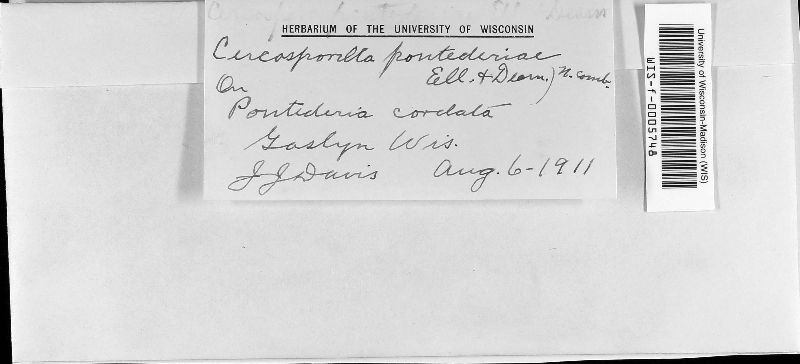 HERBARIUM OF THE UNIVERSITY OF WISCONSIN
Cercosporella pontederiae
Ell. & Dearn.) n. comb.
On
Pontederia cordata
Gaslyn Wis.
J J Davis Aug. 6-1911
University of Wisconsin-Madison (WIS)
WIS-f-0005748